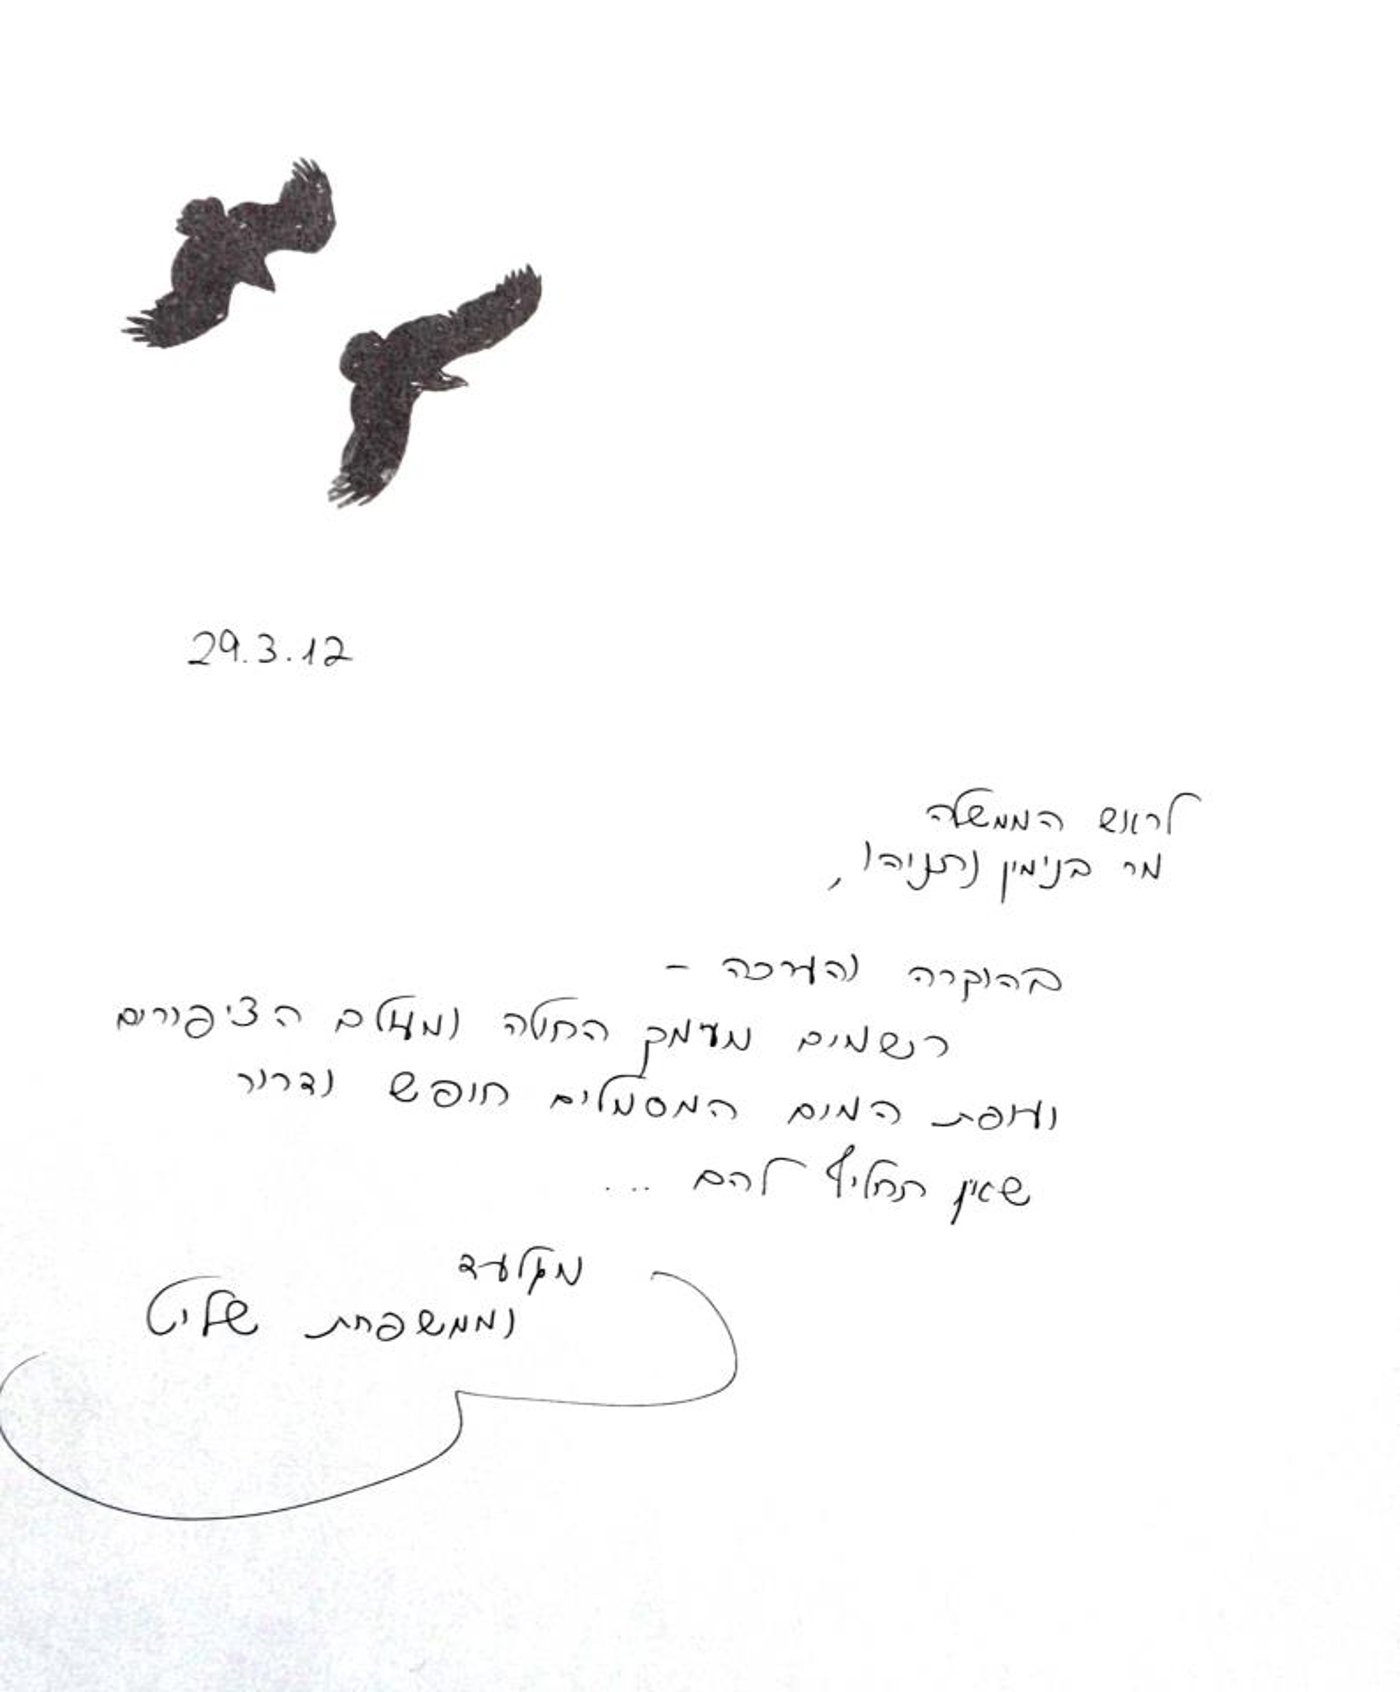 29.3.12
לראש הממשלה
מר בנימין נתניהו,
בהוקרה והערכה –
רשמים מעמק החולה ומעולם הציפורים
ועופות המים המסמלים חופש ודרור
שאין תחליף להם ...
מגלעד
וממשפחת שליט